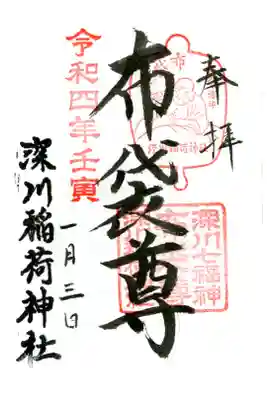 奉拝
布袋尊
令和四年壬寅
一月三日
深川稲荷神社
深川七福神